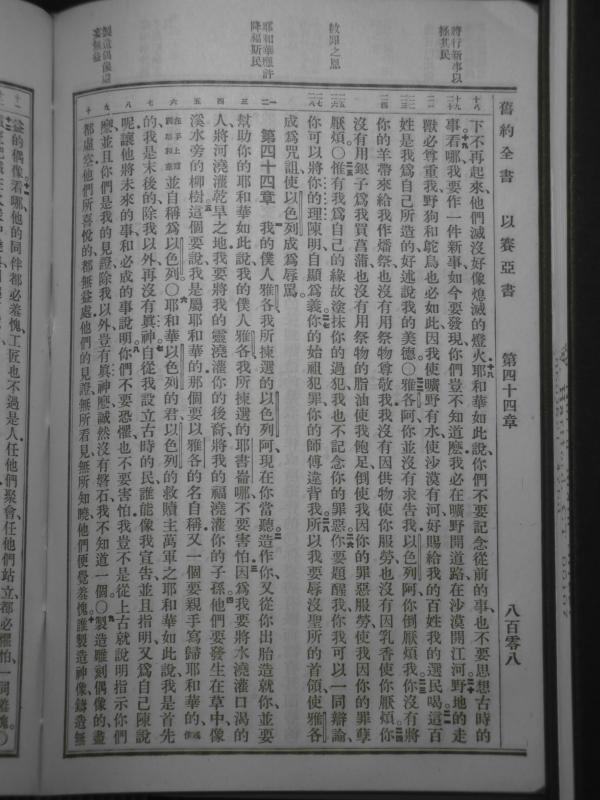 舊約全書　以賽亞書　第四十四章　八百零八
將行新事以
拯其民
救贖之恩
耶和華應許
降福斯民
製造偶像虛
妄無益
下不再起來他們滅沒好像熄滅的燈火耶和華如此說你們不要記念從前的事也不要思想古時的
事看哪我要作一件新事如今要發現你們豈不知道麼我必在曠野開道路在沙漠開江河野地的走
獸必尊重我野狗和鴕鳥也必如此因我使曠野有水使沙漠有河好賜給我的百姓我的選民喝這百
姓是我爲自己所造的好述說我的美德〇雅各阿你並沒有求告我以色列阿你倒厭煩我你沒有將
你的羊帶來給我作燔祭也沒有用祭物尊敬我我沒有因供物使你服勞也沒有因乳香使你厭煩你
沒有用銀子爲我買菖蒲也沒有用祭物的脂油使我飽足倒使我因你的罪惡服勞使我因你的罪孽
厭煩〇惟有我爲自己的緣故塗抹你的過犯我也不記念你的罪惡你要題醒我你我可以一同辯論
你可以將你的理陳明自顯爲義你的始祖犯罪你的師傅違背我所以我要辱沒聖所的首領使雅各
成爲咒詛使以色列成爲辱罵
第四十四章　我的僕人雅各我所揀選的以色列阿現在你當聽造作你又從你出胎造就你並要
幫助你的耶和華如此說我的僕人雅各我所揀選的耶書崙哪不要害怕因爲我要將水澆灌口渴的
人將河澆灌乾旱之地我要將我的靈澆灌你的後裔將我的福澆灌你的子孫他們要發生在草中像
溪水旁的柳樹這個要說我是屬耶和華的那個要以雅各的名自稱又一個要親手寫歸耶和華的或作
在手上寫歸耶和華並自稱爲以色列〇耶和華以色列的君以色列的救贖主萬軍之耶和華如此說我是首先
的我是末後的除我以外再沒有眞神自從我設立古時的民誰能像我宣告並且指明又爲自己陳說
呢讓他將未來的事和必成的事說明你們不要恐懼也不要害怕我豈不是從上古就說明指示你們
麼並且你們是我的見證除我以外豈有眞神應誠然沒有磐石我不知道一個〇製造雕刻偶像的盡
都虛空他們所喜悅的都無益處他們的見證無所看見無所知曉他們便覺羞愧誰製造神像鑄造無
益的偶像看哪他的同伴都必羞愧工匠也不過是人任他們聚會任他們站立都必懼怕一同羞愧〇